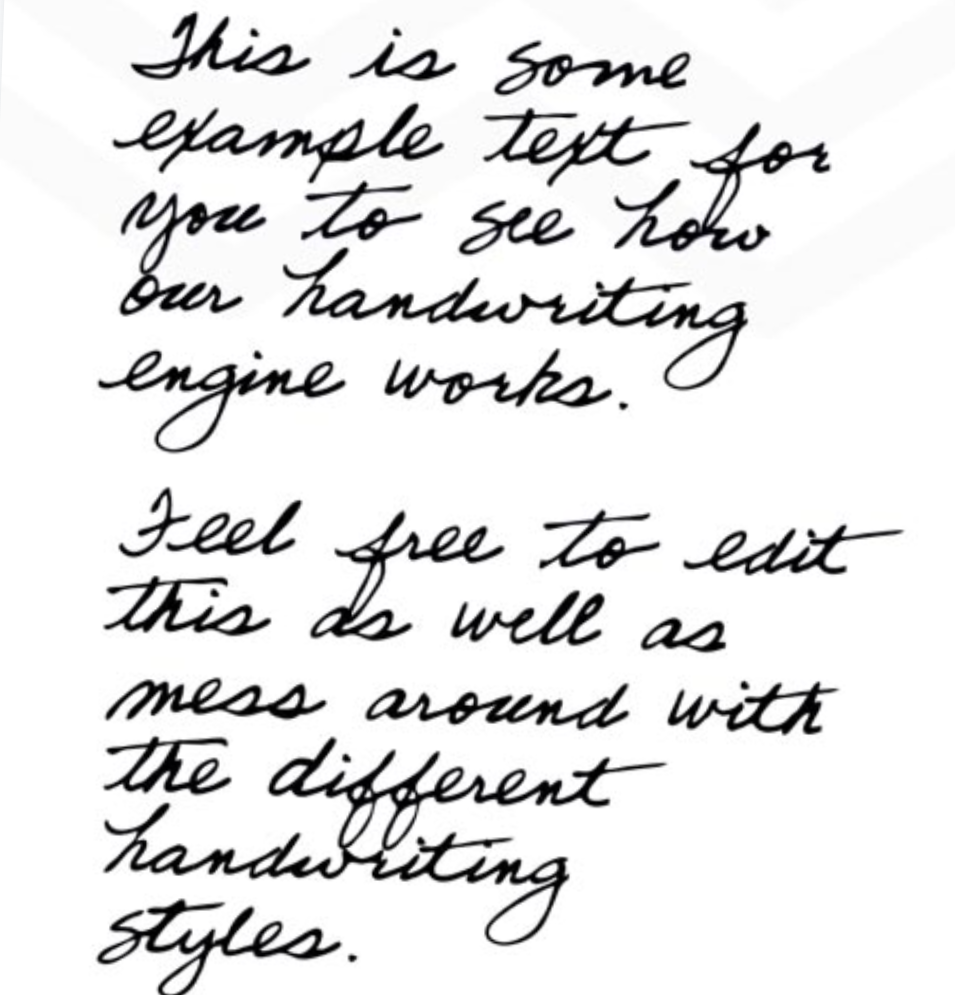 This is some
example text for
you to see how
our handwriting
engine works.

Feel free to edit
this as well as
mess around with
the different
handwriting
styles.